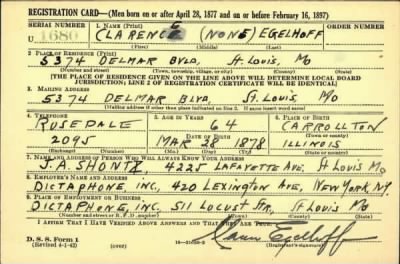 REGISTRATION CARD—(Men born on or after April 28, 1877 and on or before February 16, 1897)
SERIAL NUMBER 1. NAME (Print)
U 1680 CLARENCE (NONE) EGELHOFF
(First) (Middle) (Last)
2. PLACE OF RESIDENCE (Print)
5374 DELMAR BVLD, ST. LOUIS, MO
(Number and street) (Town, township, village, or city) (County) (State)
[THE PLACE OF RESIDENCE GIVEN ON THE LINE ABOVE WILL DETERMINE LOCAL BOARD
JURISDICTION; LINE 2 OF REGISTRATION CERTIFICATE WILL BE IDENTICAL]
3. MAILING ADDRESS
5374 DELMAR BLVD, ST. LOUIS MO
[Mailing address if other than place indicated on line 2. If same insert word same]
4. TELEPHONE 5. AGE IN YEARS 6. PLACE OF BIRTH
ROSEDALE 64 CARROLLTON
DATE OF BIRTH (Town or county)
2095 MAR 28 1878 ILLINOIS
(Exchange) (Number) (Mo.) (Day) (Yr.) (State or country)
7. NAME AND ADDRESS OF PERSON WHO WILL ALWAYS KNOW YOUR ADDRESS
J.A. SHONTZ, 4225 LAFAYETTE AVE, ST LOUIS MO
8. EMPLOYER'S NAME AND ADDRESS
DICTAPHONE, INC, 420 LEXINGTON AVE, NEW YORK NY
9. PLACE OF EMPLOYMENT OR BUSINESS
DICTAPHONE, INC. 511 LOCUST STR, ST LOUIS MO
(Number and street or R. F. D. number) (Town) (County) (State)
I AFFIRM THAT I HAVE VERIFIED ABOVE ANSWERS AND THAT THEY ARE TRUE.
D. S. S. Form 1
(Revised 4-1-42) (over) Egelhoff
(Registrant's signature)